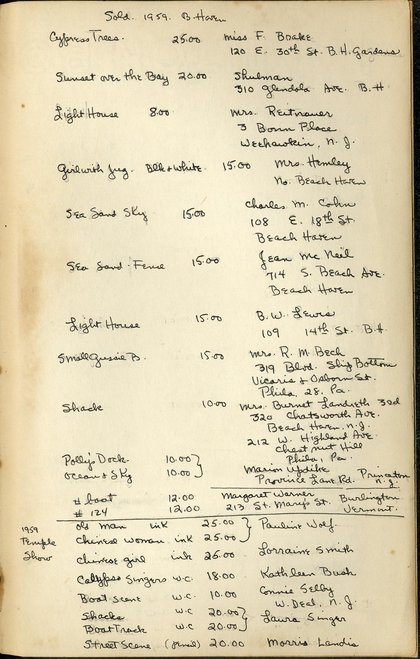 Sold. 1959. B. Haven
Cypress Trees. 25.00 miss F. Brake
120 E. 30th St. B.H. Gardens
Sunset over the Bay 20.00 Shulman
310 Glendola Ave. B.H
Light House 8.00 Mrs. Reitnauer
3 Bonn Place
Weehawkin, N.J.
Girl with Jug. Blk + White. 15.00 Mrs. Hemley
No. Beach Haven
Sea Sand Sky 15.00 Charles M. Cohn
108 E. 18th St.
Beach Haven
Sea Sand-Fence 15.00 Jean McNeil
714 S. Beach Ave.
Beach Haven
Light House 15.00 B. W. Lewis
109 14th St. B.H.
Small Gussie B. 15.00 Mrs. R. M. Bech
319 Blvd. Ship Bottom
Vicaris & Osborn St.
Phila. 28, Pa.
Shack 10.00 Mrs. Burnet Landreth 3rd
320 Chatsworth Ave.
Beach Haven, N.J.
212 W. Highland Ave.
Chestnut Hill
Phila, Pa.
Polly's Dock. 10.00 } Marion Updike
Ocean & Sky 10.00 } Province Lane Rd. Princeton N.J.
# boat 12.00 Margaret Warner
# 124 12.00 213 St. Mary's St. Burlington Vermont.
1959 Temple Show
old man ink 25.00 } Pauline Wolf
Chinese woman ink 25.00 }
Chinese girl ink 25.00 Lorraine Smith
Calypso Singers w.c. 18.00 Kathleen Bush
Boat Scene w.c. 10.00 Connie Selby
W. Deal, N.J.
Shacks w.c 20.00 } Laura Singer
Boat Track w.c 20.00 }
Street Scene 20.00 Morris Landis